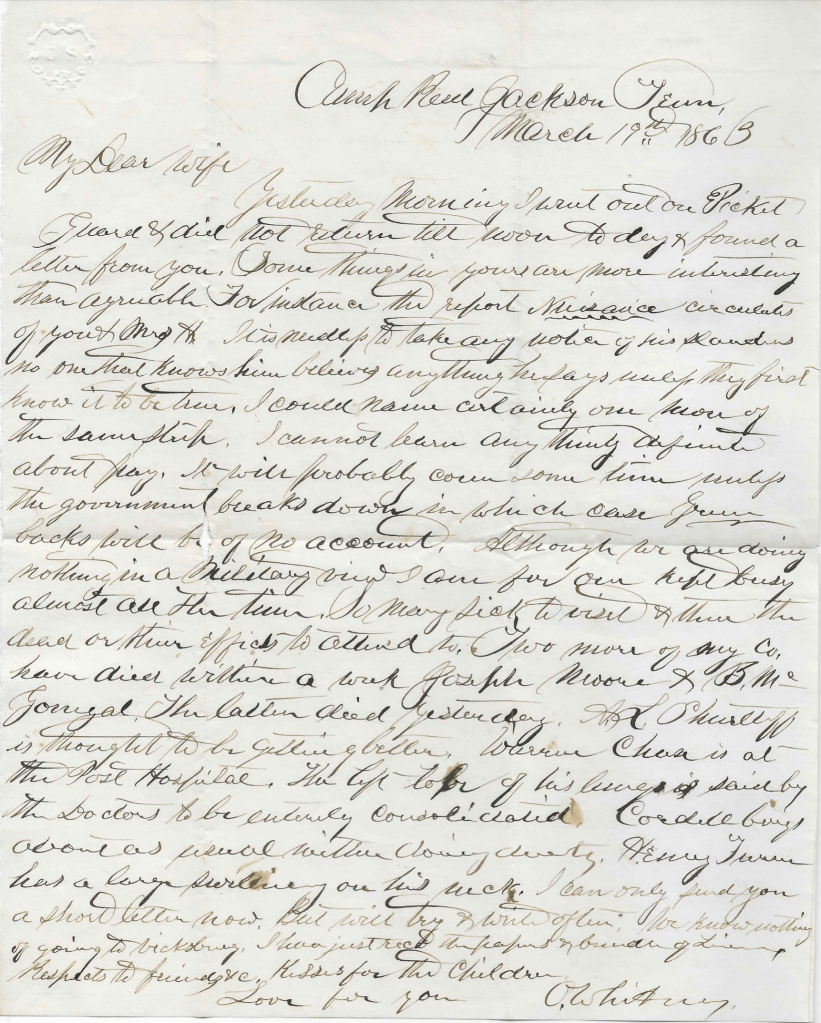 Camp Reed Jackson Tenn,
March 19th 1863
My Dear Wife
Yesterday Morning I went out on Picket
Guard & did not return till noon to day & found a
letter from you. Some things in yours are more interesting
than agreeable For instance the report Nuisance circulates
of you & Mrs H. It is needless to take any notice of his slanders
no one that knows him believes anything he says unless they first
know it to be true. I could name certainly one man of
the same strip. I cannot learn any thing definite
about pay. It will probably come some time unless
the government breaks down in which case Green
backs will be of no account. Although we are doing
nothing in a Military view I am for one kept busy
almost all the time. So many sick to visit & then the
dead or their effects to attend to. Two more of my Co.
have died within a week Joseph Moore & B. Mc
Gonigal. The latter died yesterday. A. L.
is thought to be getting better. Warren Chase is at
the Post Hospital. The left lobe of his lungs is said by
the Doctors to be entirely consolidated. Cordell
about as usual doing duty. Henry
has a large swelling on his neck. I can only send you
a short letter now. But will try & write often. We know nothing
of going to Vicksburg. I have just recd the papers &
Respects to friends &c. Kisses for the Children
Love for you O. Whitney.